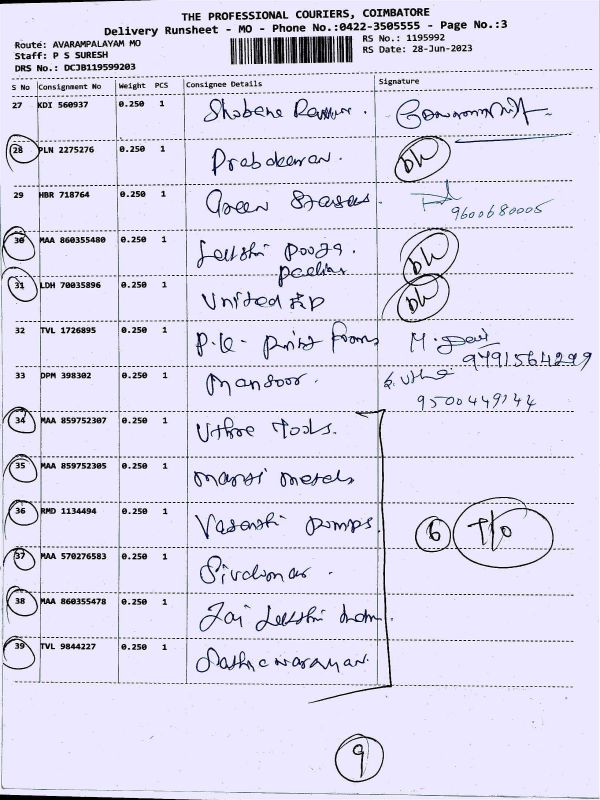 THE PROFESSIONAL COURIERS, COIMBATORE
Delivery Runsheet - MO - Phone No.:0422-3505555 - Page No.:3
Route: AVARAMPALAYAM MO RS No.: 1195992
Staff: P S SURESH RS Date: 28-Jun-2023
DRS No.: DCJB119599203
S No Consignment No Weight PCS Consignee Details Signature
27 KDI 560937 0.250 1 Shobana
28 PLN 2275276 0.250 1 Prabakaran. DL
29 HBR 718764 0.250 1 Green 9600680005
30 MAA 860355480 0.250 1 Lakshi Pooja. DL
31 LDH 70035896 0.250 1 United DL
32 TVL 1726895 0.250 1 P.K- Print Forms 9791564299
33 DPM 398302 0.250 1 Mansoor. 9500449144
34 MAA 859752307 0.250 1 Uthra Tools.
35 MAA 859752305 0.250 1 Metals
36 RMD 1134494 0.250 1 Pumps. 6 T/O
37 MAA 570276583 0.250 1 Sivakumar.
38 MAA 860355478 0.250 1 Jai
39 TVL 9844227 0.250 1 Sathyanarayanan.
9